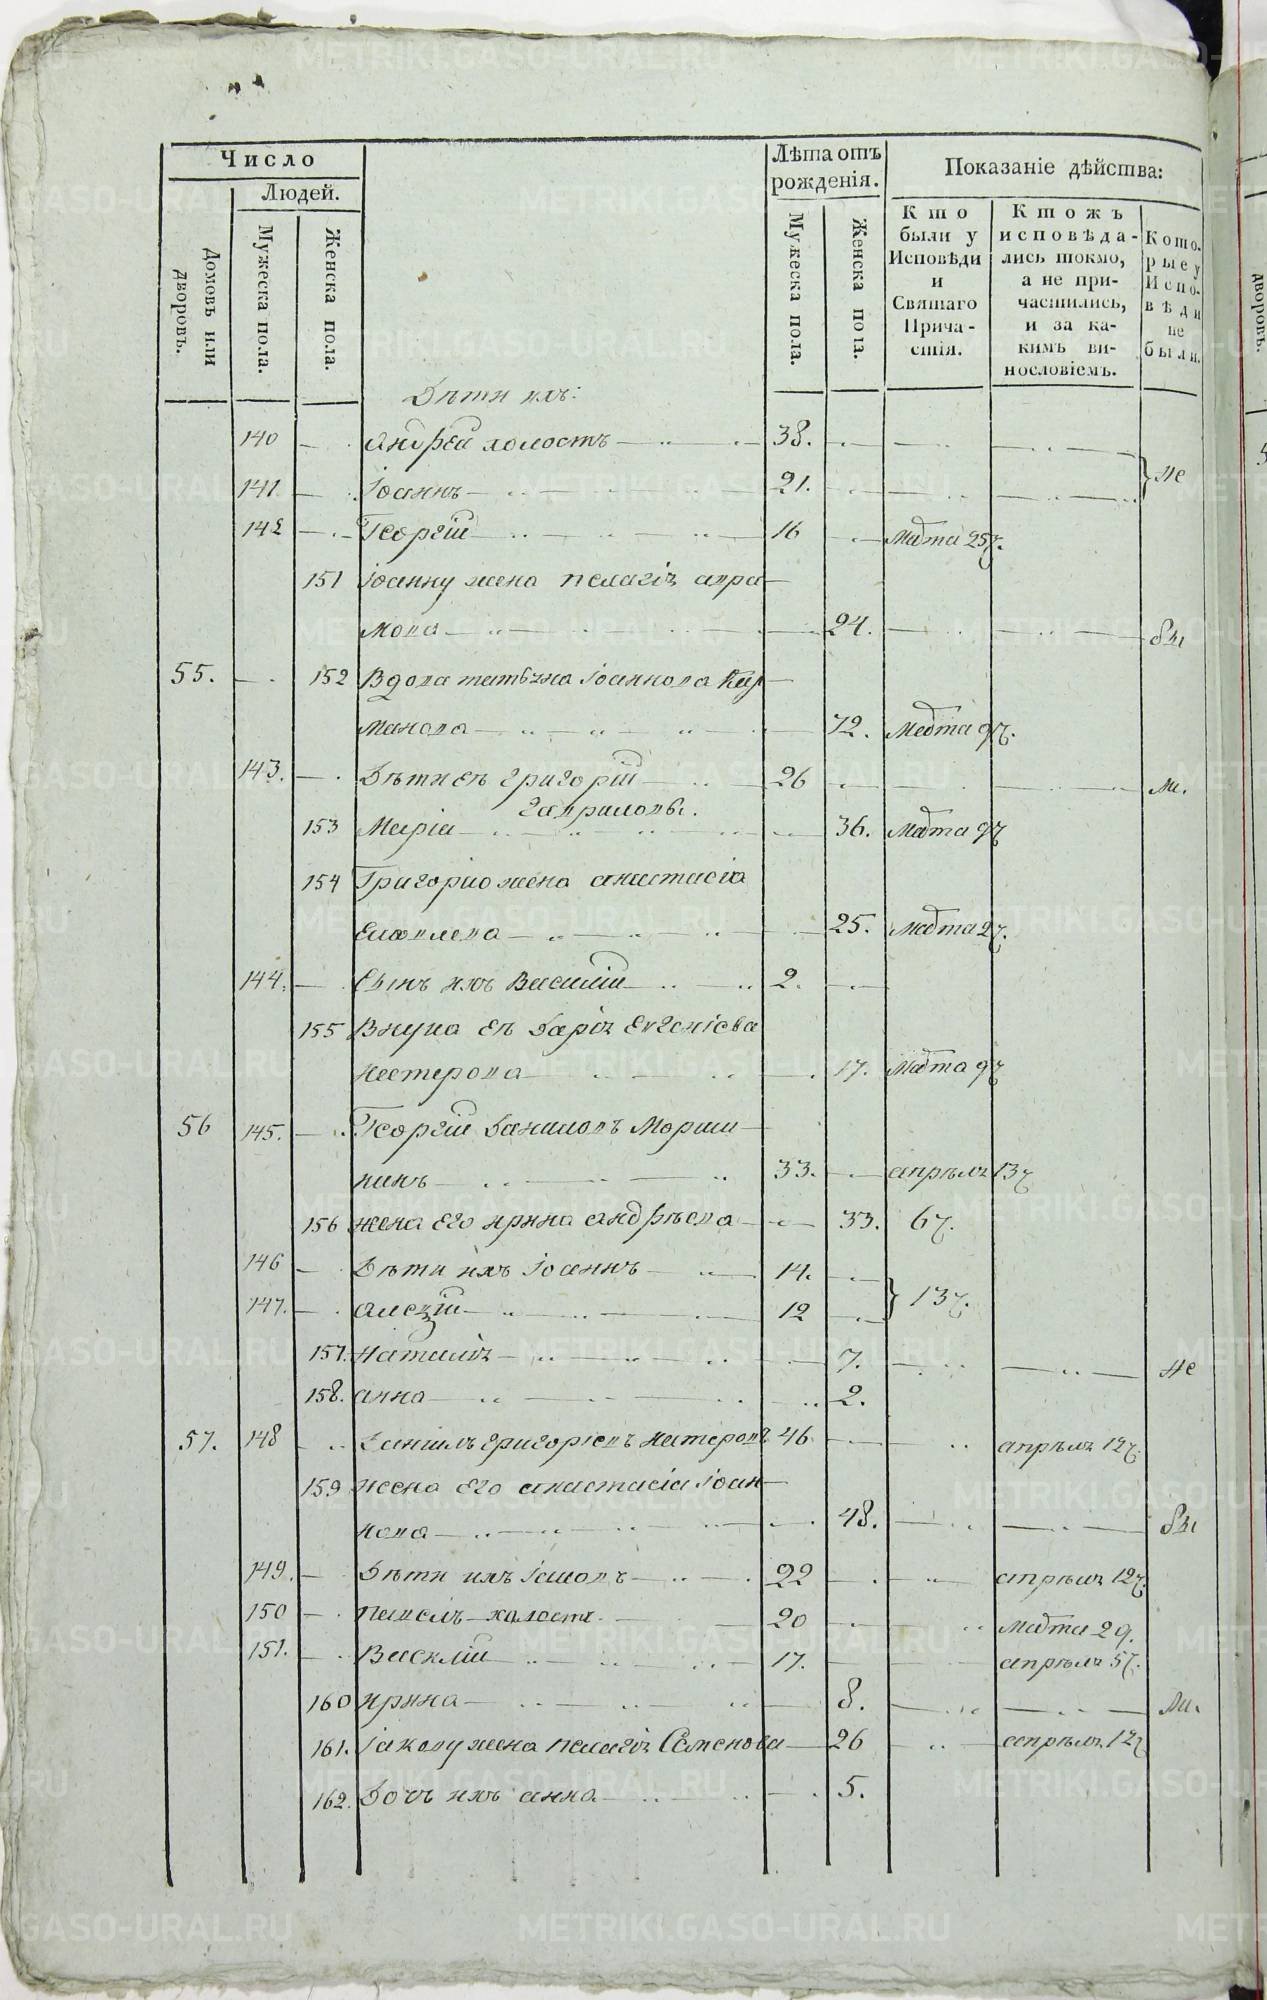 Число
Людей.
Домовъ или дворовъ.
Мужеска пола.
Женска пола.
Лѣта отъ рожденія.
Мужеска пола.
Женска пола.
Показаніе дѣйства:
Кто были у Исповѣди и Святаго Причастія.
Ктожъ исповѣдались токмо, а не причастились, и за какимъ винословіемъ.
Которые у Исповѣди не были.
Дѣти ихъ:
140 Андрей холостъ 38.
141 Іоаннъ 21. не
142 Георгій 16 Марта 25ч.
151 Іоанну жена Пелагіѧ Авра
мова 24. бы
55. 152 Вдова Татьяна Іоаннова Кар
манова 72. Марта 9ч.
143. Дѣти еѣ Григорій 26 ли.
Гавриловы.
153 Марія 36. Марта 9ч
154 Григорію жена Анастасіа
Еѵѳимева 25. Марта 2ч.
144. Сынъ ихъ Василій 2.
155 Внука еѣ Даріѧ Евгеніева
Нестерова 17. Марта 9ч
56 145. Георгій Даниловъ Морши
нинъ 33. Апрѣлѧ 13ч
156 жена его Ирина Андрѣева 33. 6ч.
146 Дѣти ихъ Іоаннъ 14.
147. Алеѯій 12 13ч.
157. Наталіѧ 7. не
158. Анна 2.
57. 148 Даніилъ Григоріевъ Нестеровъ 46 апрѣлѧ 12ч.
159 жена его Анастасіа Іоан
нова 48. бы
149. Дѣти ихъ Іаковъ 22 апрѣлѧ 12ч.
150 Павелъ холостъ. 20 Марта 29.
151. Василій 17. апрѣлѧ 5ч.
160 Ирина 8. ли.
161. Іакову жена Пелагіѧ Семенова 26 апрѣлѧ 12ч
162. Дочь ихъ Анна 5.
METRIKI.GASO-URAL.RU